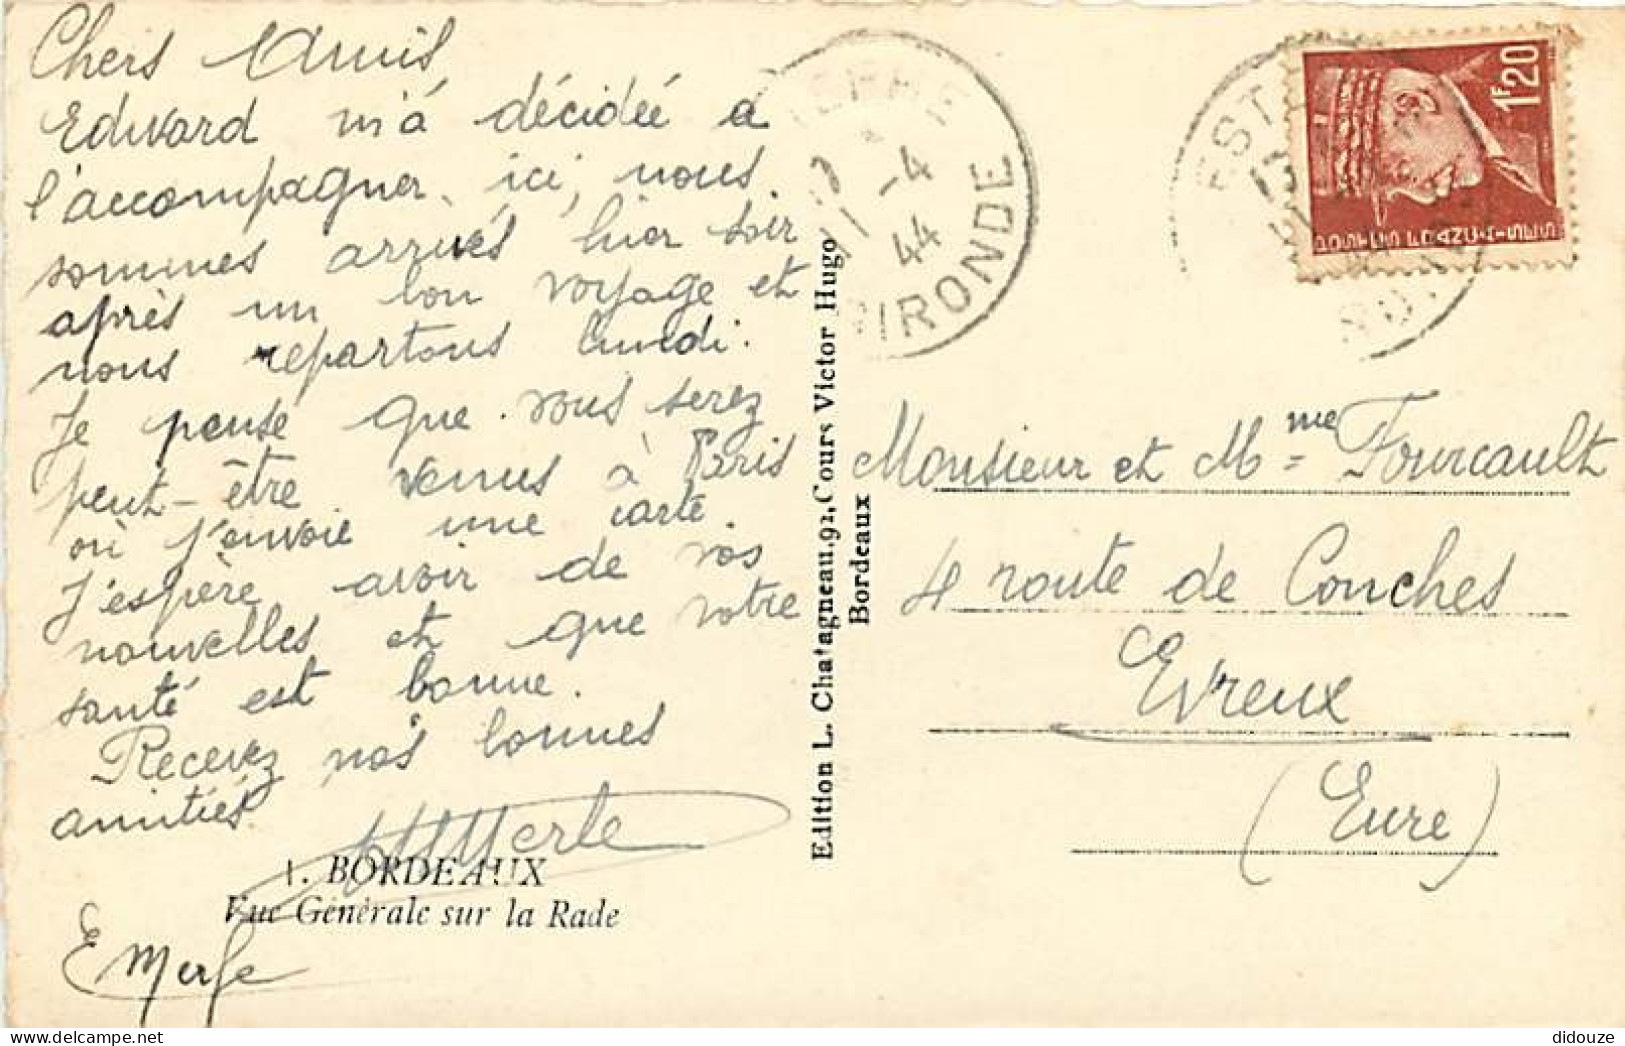 Chers Amis,
Edward m'a décidée a
l'accompagner, ici, nous
sommes arrivés hier soir
après un bon voyage et
nous repartons lundi.
Je pense que vous serez
peut-être venus à Paris
où j'envoie une carte.
J'espère avoir de vos
nouvelles et que votre
santé est bonne.
Recevez nos bonnes
amitiés
Merle
1. BORDEAUX
Vue Générale sur la Rade
E Merle
Edition L. Chatagneau, 92, Cours Victor Hugo
Bordeaux
-4
44
GIRONDE
1F20
POSTES FRANÇAISES
Monsieur et Mme Fourcault
4 route de Conches
Evreux
(Eure)
didouze